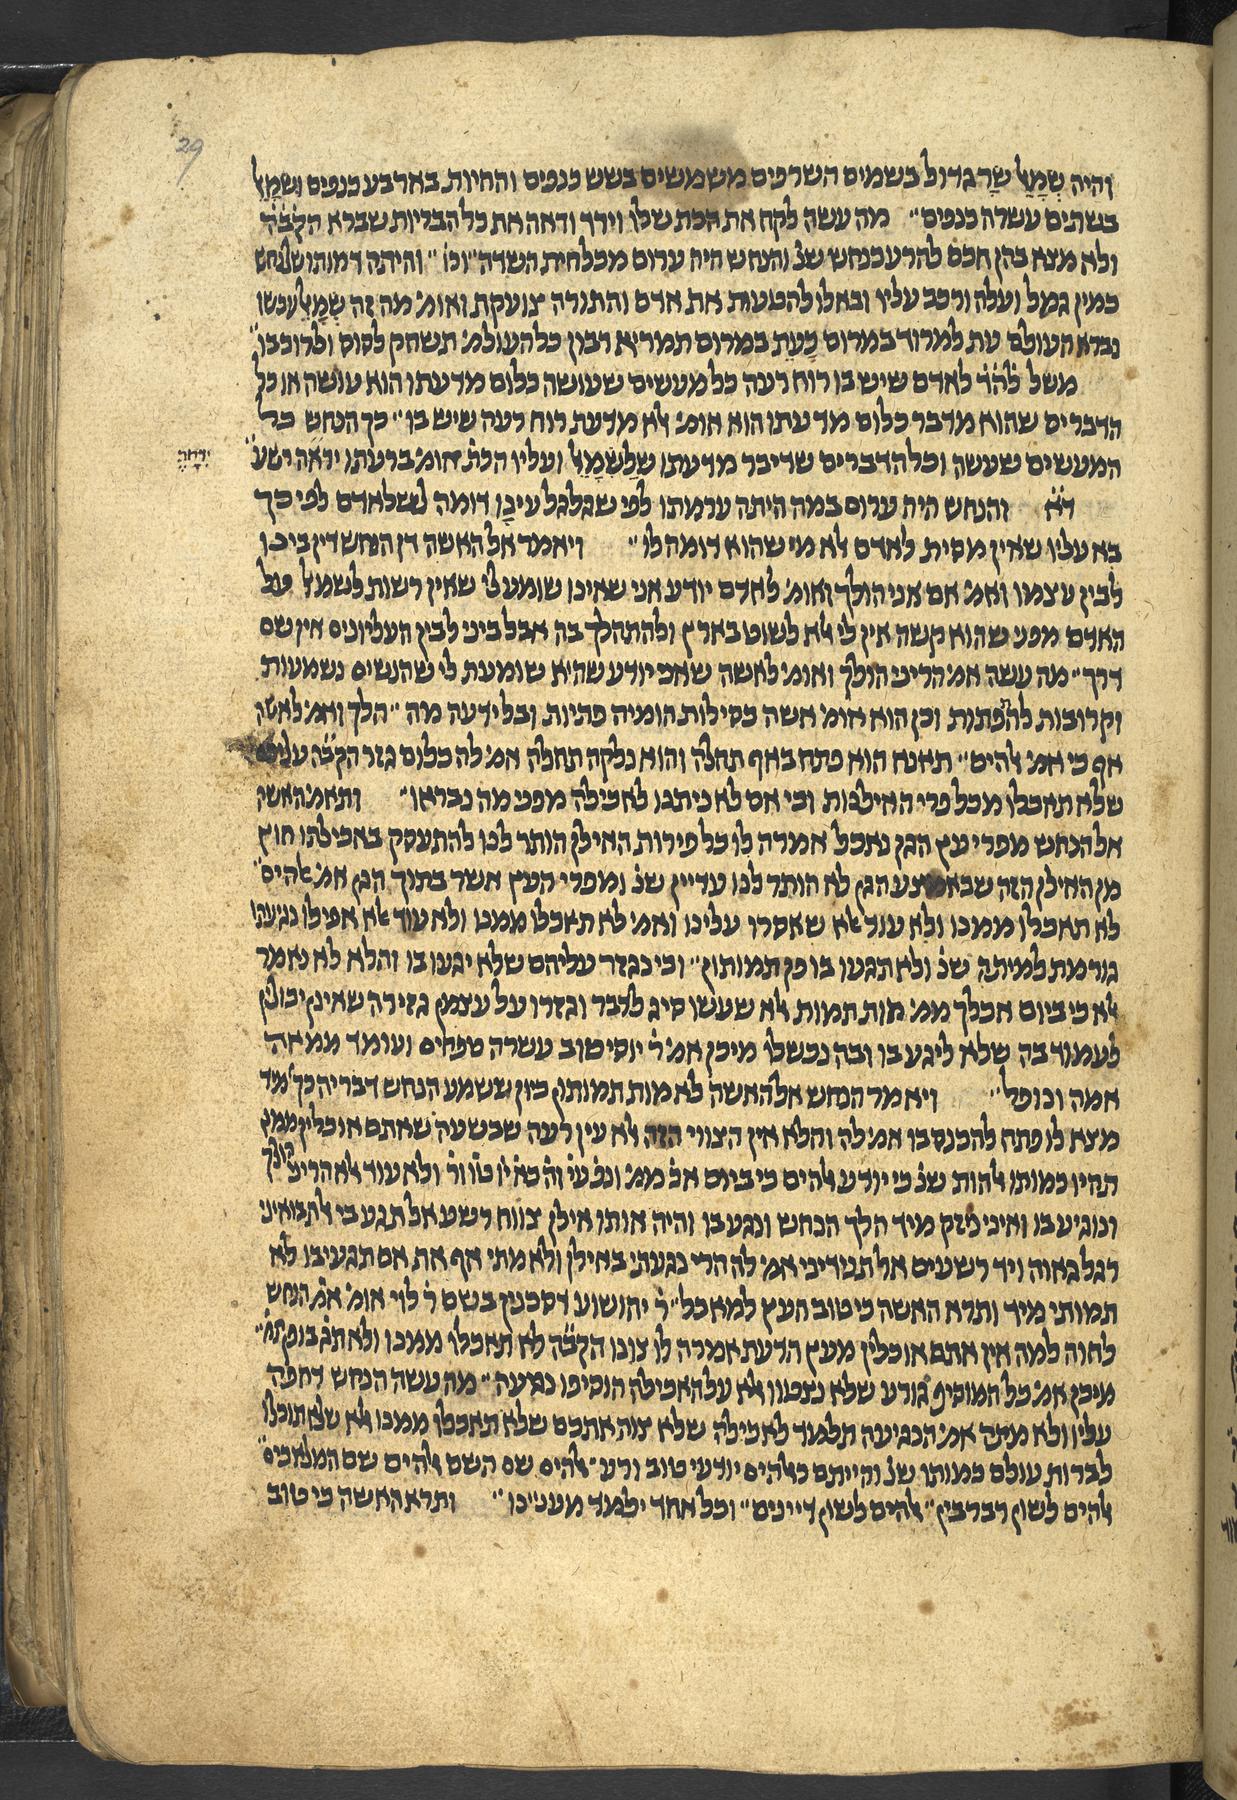 29
והיה שְמָאֵל שַר גדול בשמים השרפים משמשים בשש כנפים והחיות בארבע כנפים ושמָאֵל
בשתים עשרה כנפים״ מה עשה לקח את הכת שלו וירד וראה את כל הבריות שברא הקב״ה
ולא מצא בהן חכם להרע כנחש שנ׳ והנחש היה ערום מכל חית השדה״ וכו׳״ והיתה דמותו של נחש
כמין גמל ועלה ורכב עליו ובאלו להטעות את אדם והתורה צועקת ואומ׳ מה זה שְמָאֵל עכשו
נברא העולם עת למרוד במרום כָעֵת במרום תמריא רבון כל העולמ׳ תשחק לסוס ולרוכבו״
משל להד׳ לאדם שיש בו רוח רעה כל מעשים שעושה כלום מדעתו הוא עושה או כל
הדברים שהוא מדבר כלום מדעתו הוא אומ׳ לא מדעת רוח רעה שיש בו״ כך הנחש כל
המעשים שעשה וכל הדברים שדיבר מדעתו שֶלְשְמָאֵל ועליו הכת׳ אומ׳ ברעתו ידחה רשע״
ידָחֶה
ד״א והנחש היה ערום במה היתה ערמתו לפי שגלגל עינָו דומה לשלאדם לפי כך
בא עליו שאין מסית לאדם לא מי שהוא דומה לו״ ויאמר אל האשה דן הנחש דין בינו
לבין עצמו ואמ׳ אם אני הולך ואומ׳ לאדם יודע אני שאינו שומע לי שאין רשות לשמאל על
האדם מפני שהוא קשה אין לי לא לשוט בארץ ולהתהלך בה אבל ביני לבין העליונים אין שם
דרך״ מה עשה אמ׳ הריני הולך ואומ׳ לאשה שאני יודע שהיא שומעת לי שהנשים נשמעות
וקרובות להפתות וכן הוא אומ׳ אשה כסילות הומיה פתיות ובל ידעה מה״ הלך ואמ׳ לאשה
אף כי אמ׳ אלהים״ תאנא הוא פתח באף תחלה והוא נלקה תחלה אמ׳ לה כלום גזר הקב״ה עליכם
שלא תאכלו מכל פרי האילנות וכי אם לא ניתנו לאכילה מפני מה נבראו״ ותאמ׳ האשה
אל הנחש מפרי עץ הגן נאכל אמרה לו כל פירות האילן הותר לנו להתעסק באכילתו חוץ
מן האילן הזה שבאמצע הגן לא הותר לנו עדיין שנ׳ ומפרי העץ אשר בתוך הגן אמ׳ אלהים״
לא תאכלו ממנו ולא עוד לא שאסרו עלינו ואמ׳ לא תאכלו ממנו ולא עוד לא אפילו נגיעתו
גורמת למיתה שנ׳ ולא תגעו בו פן תמותון״ וכי נגזר עליהם שלא יגעו בו והלא לא נאמר
לא כי ביום אכלך ממ׳ מות תמות לא שעשו סיג לדבר וגזרו על עצמן גזירה שאינן יכולין
לעמוד בה שלא ליגע בו ובה נכשלו מיכן אמ׳ ר׳ יוסי טוב עשרה טפחים ועומד ממאה
אמה ונופל״ ויאמר הנחש אל האשה לא מות תמותון כיון ששמע הנחש דבריה כך מיד
מצא לו פתח להכנס בו אמ׳ לה והלא אין הצווי הזה לא עין רעה שבשעה שאתם אוכלין ממנו
תהיו כמותו אלהות שנ׳ כי יודע אלהים כי ביום אכ׳ ממ׳ ונפ׳ עי׳ וה׳ כא׳ יו׳ טו׳ ור׳ ולא עוד לא הריני הולך
ונוגיע בו ואיני ניזק מיד הלך הנחש ונגע בו והיה אותו אילן צווח רשע אל תגע בי אל תבואיני
רגל גאוה ויד רשעים אל תנידיני אמ׳ לה הרי נגעתי באילן ולא מתי אף את אם תגעי בו לא
תמותי מיד ותרא האשה כי טוב העץ למאכל״ ר׳ יהושוע דסכנין בשם ר׳ לוי אומ׳ אמ׳ הנחש
לחוה למה אין אתם אוכלין מעץ הדעת אמרה לו צונו הקב״ה לא תאכלו ממנו ולא תג׳ בו פן תמ׳״
מיכן אמ׳ כל המוסיף גורע שלא נצטוון לא על האכילה הוסיפו נגיעה״ מה עשה הנחש דחפה
עליו ולא מתה אמ׳ הנגיעה תלמוד לאכילה שלא צוה אתכם שלא תאכלו ממנו לא שלא תוכלו
לברות עולם כמותו שנ׳ והייתם כאלהים יודעי טוב ורע״ אלהים שם השם אלהים שם המלאכים״
אלהים לשון רברבין״ אלהים לשון דיינים״ וכל אחד ילמד מעניינו״ ותרא האשה כי טוב